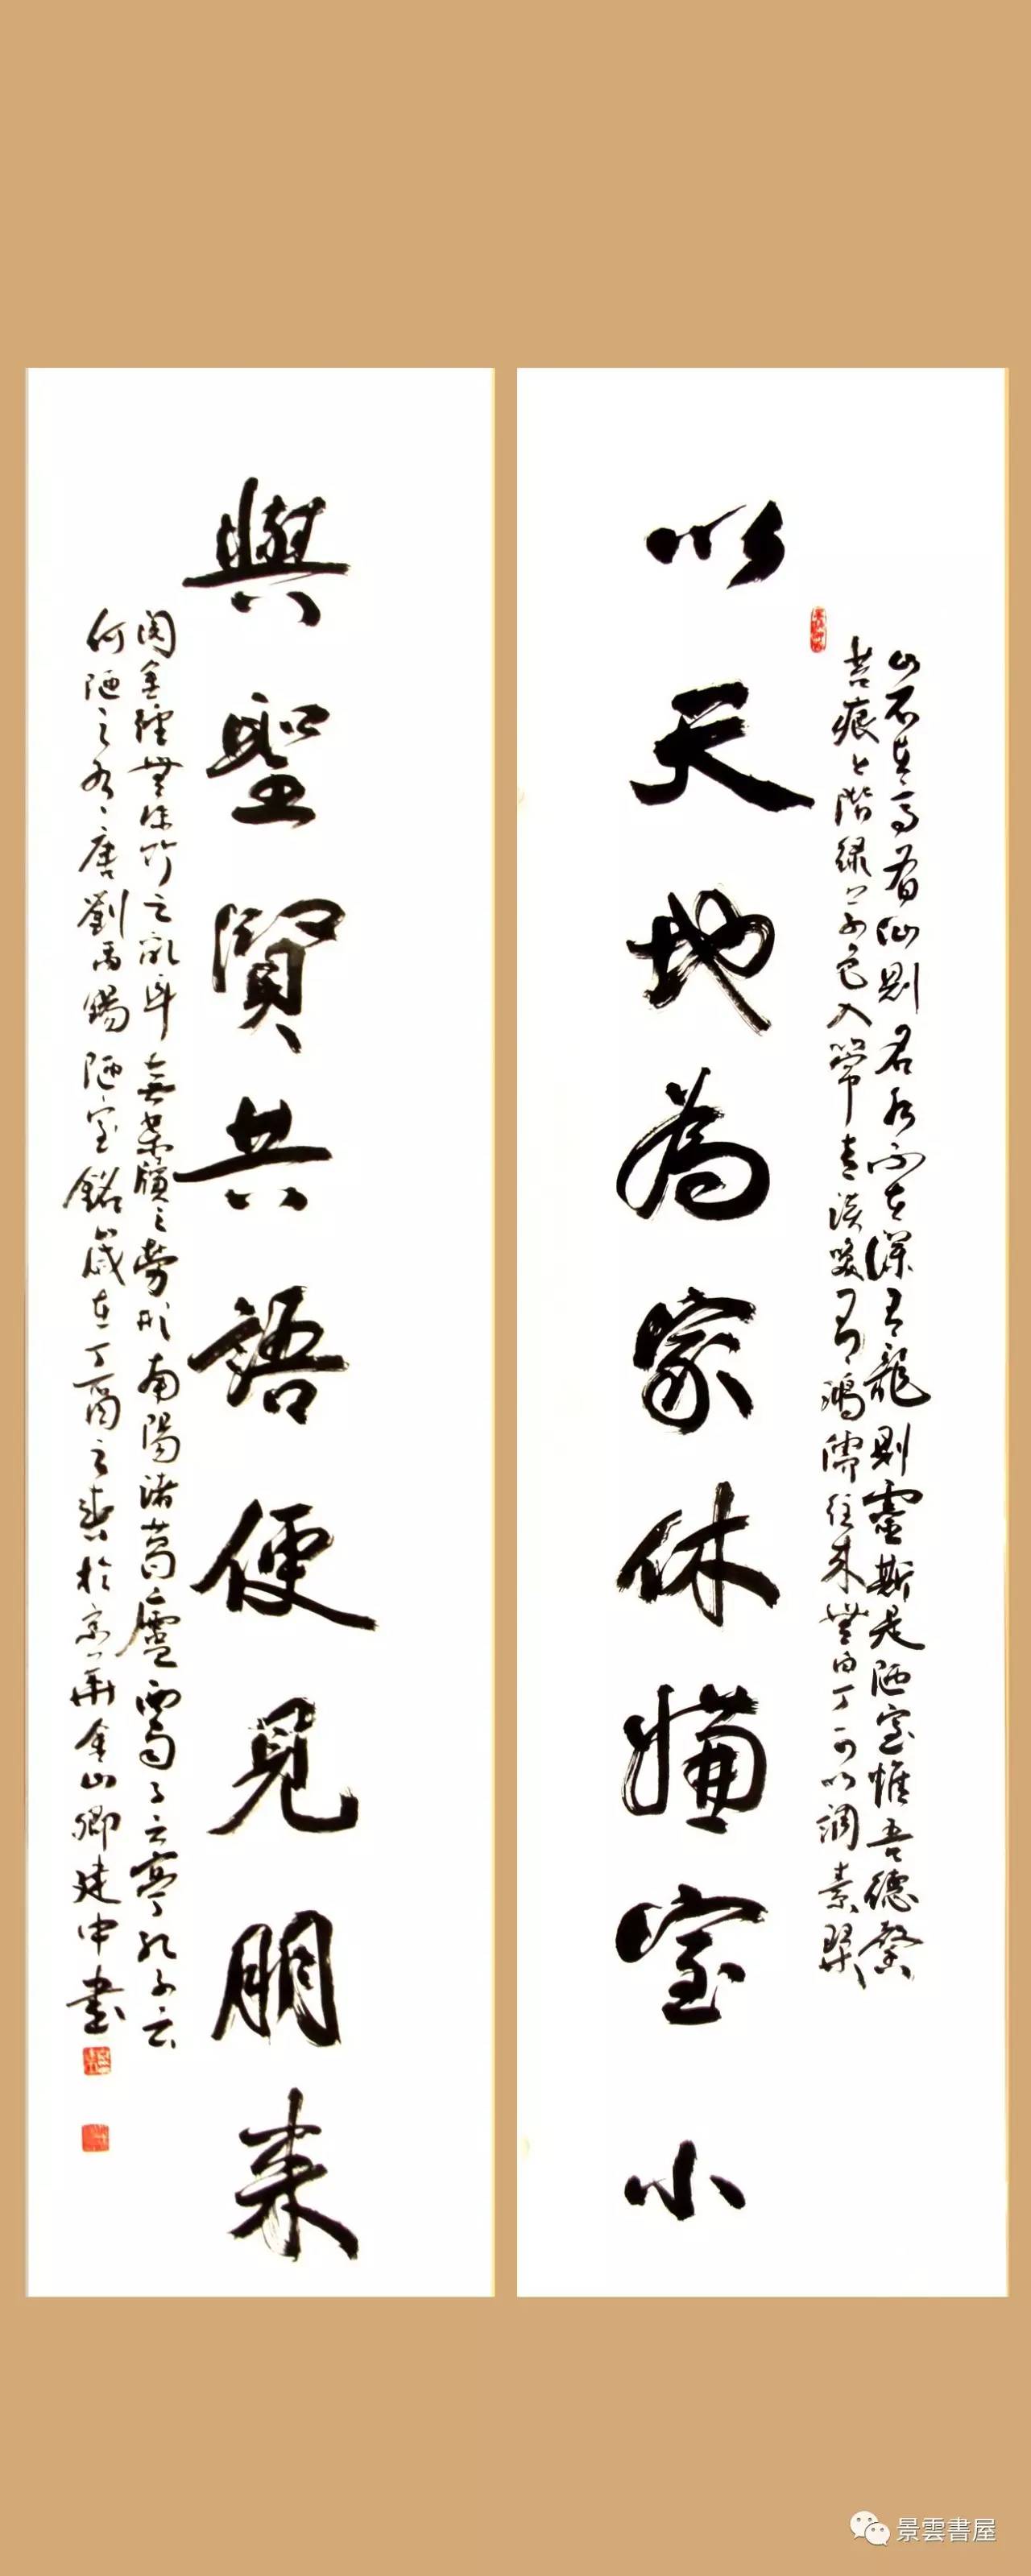 以天地為家休嫌室小
山不在高有仙則名水不在深有龍則靈斯是陋室惟吾德馨
苔痕上階綠草色入簾青談笑有鴻儒往來無白丁可以調素琴
與聖賢共語便見朋来
閱金經無絲竹之亂耳無案牘之勞形南陽諸葛廬西蜀子云亭孔子云
何陋之有唐劉禹錫陋室銘歲在丁酉之春於京華金山卿建中書
景雲書屋